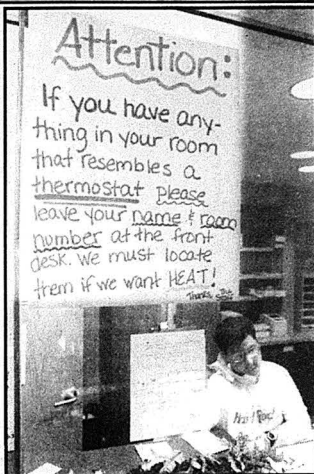 Attention:
If you have any-
thing in your room
that resembles a
thermostat please
leave your name & room
number at the front
desk. We must locate
them if we want HEAT!
Thanks,
Hard Rock